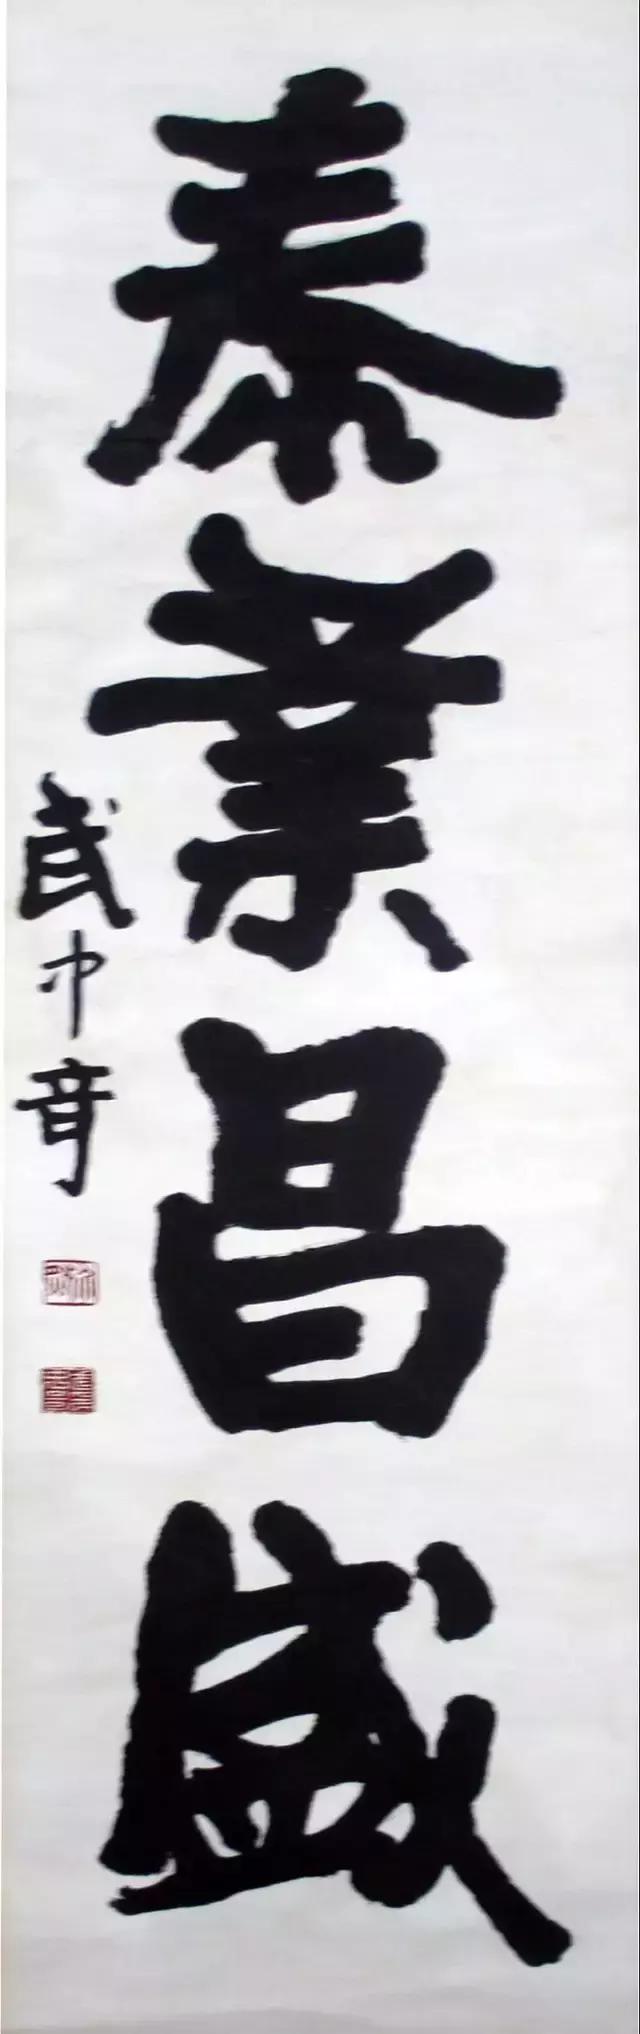 泰業昌盛
武中奇